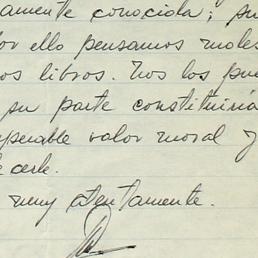 amente conocida; su
or ello pensamos moles
os libros. Nos los pue
su parte constituiría
uperable valor moral y
muy atentamente.